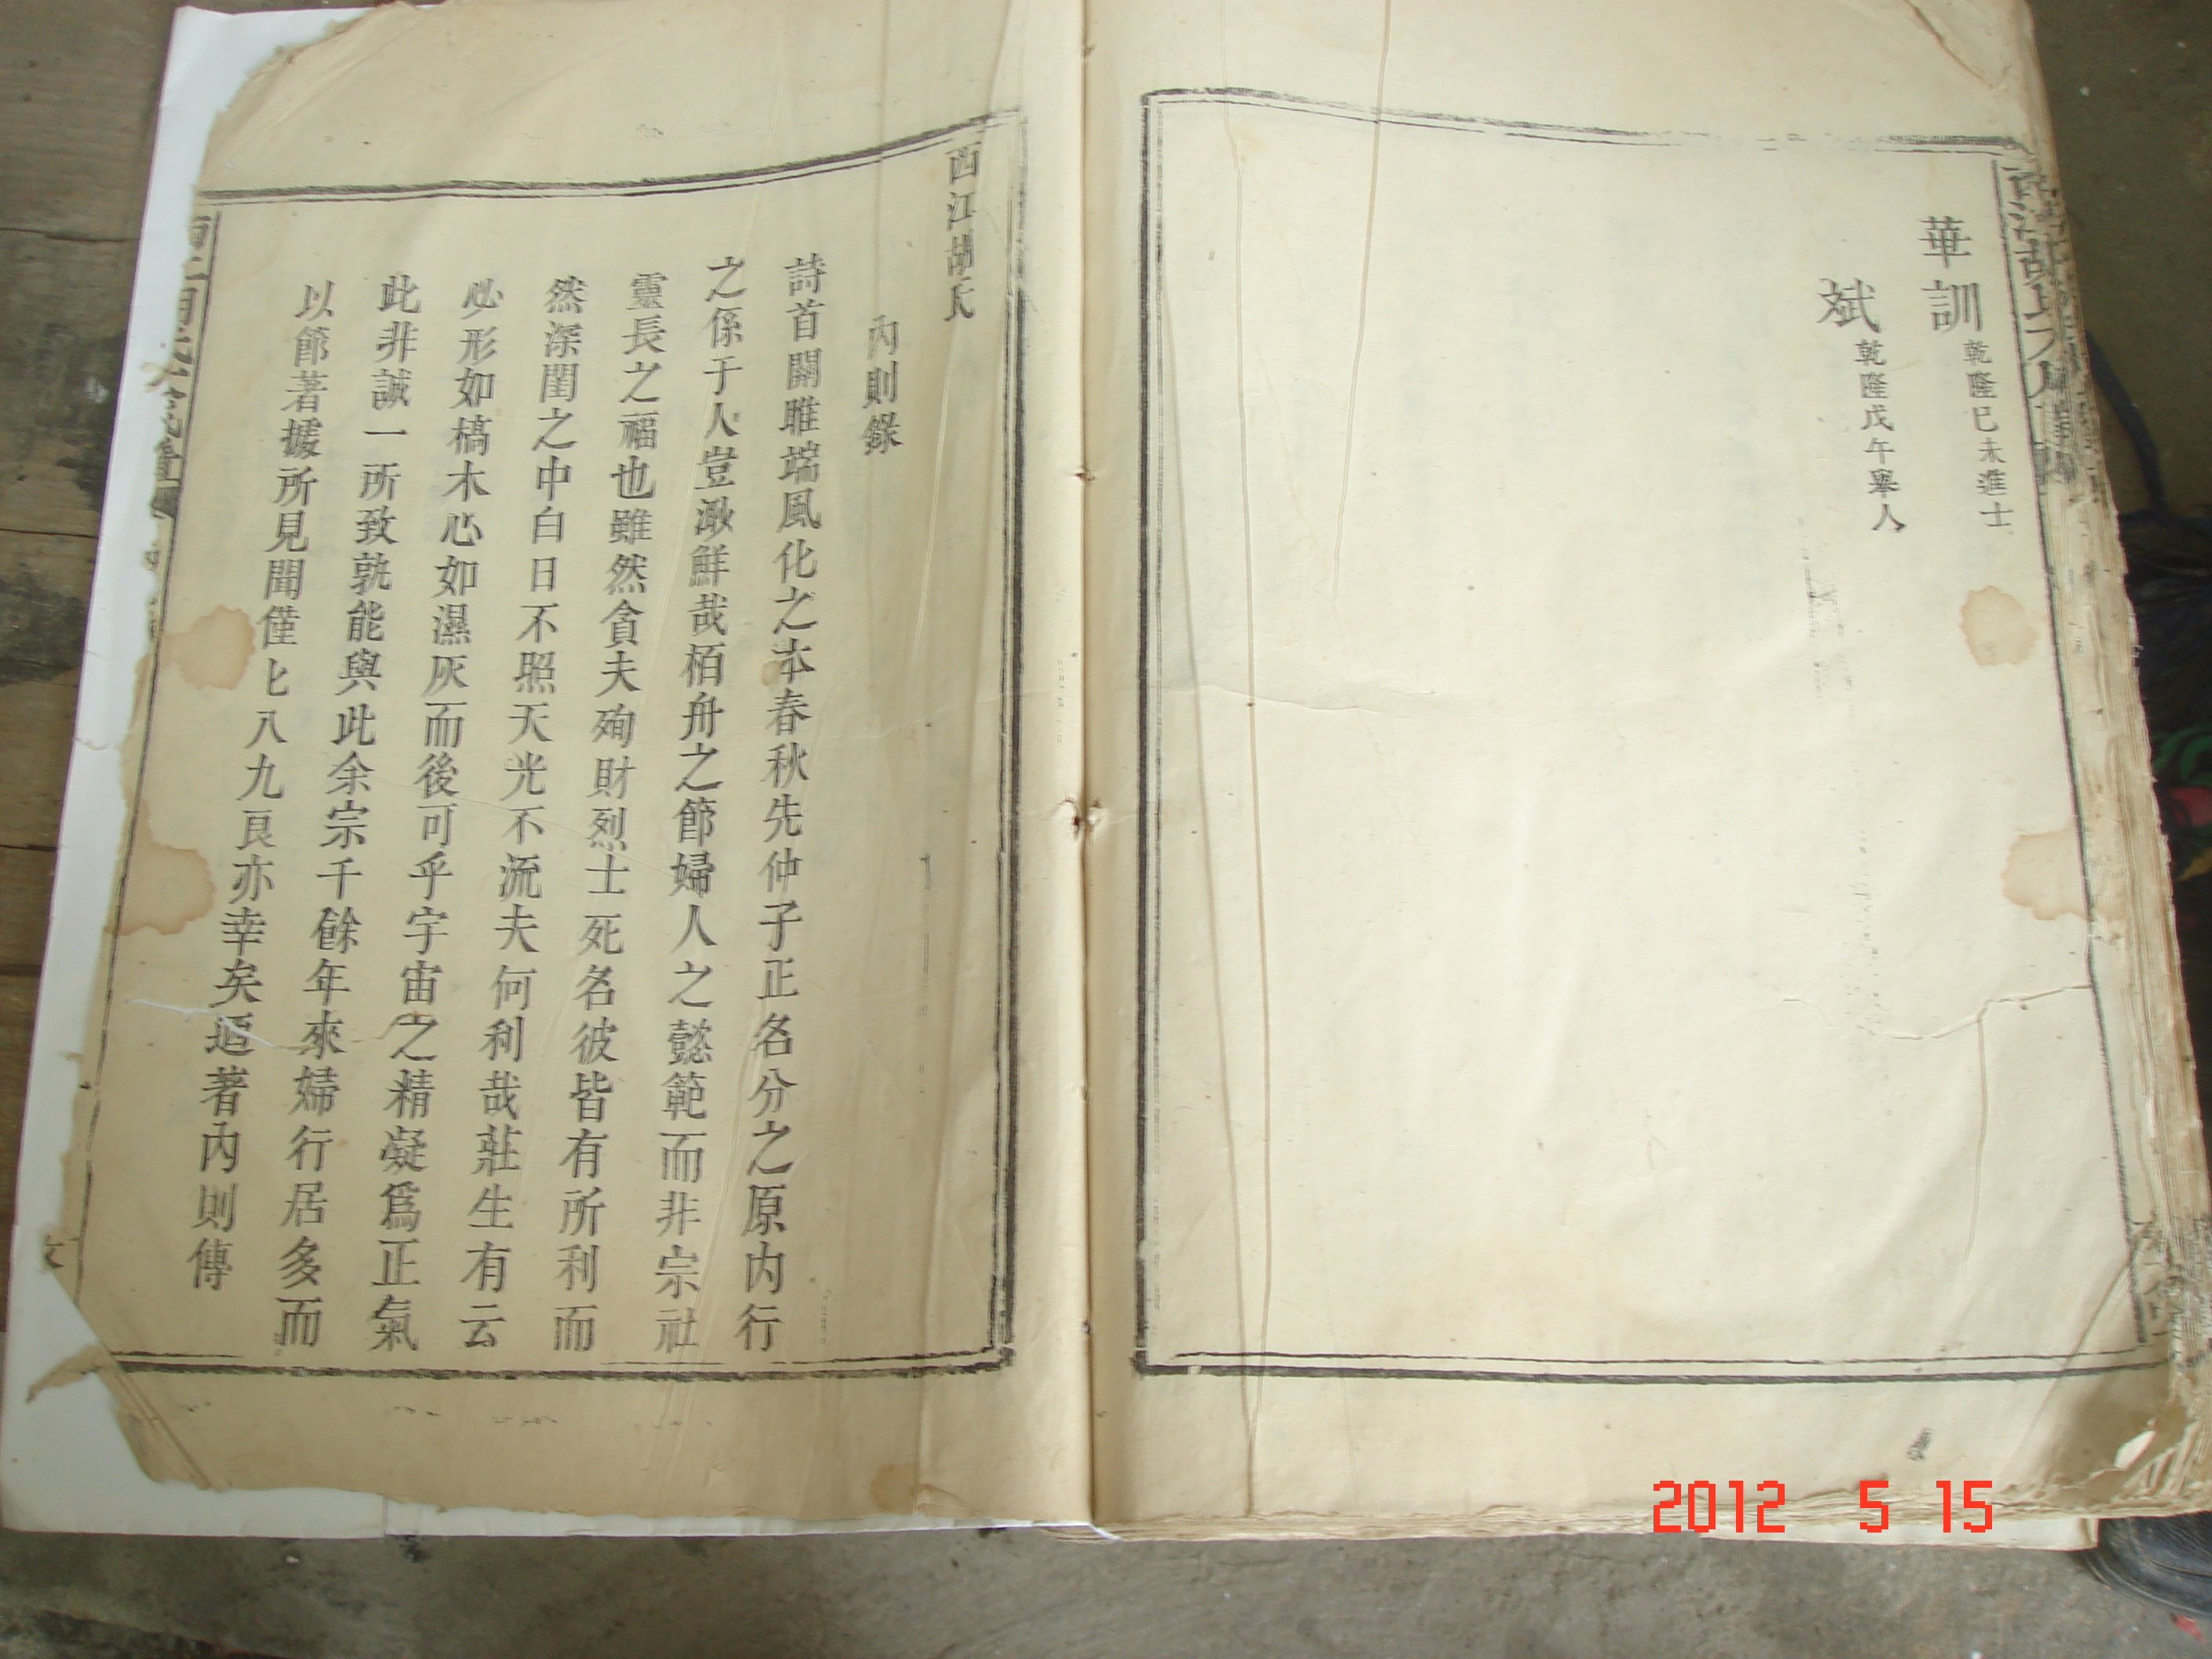 華訓乾隆己未進士
斌乾隆戊午舉人
西江胡氏
內則錄
詩首關雎端風化之本春秋先仲子正名分之原內行
之係于人豈渺鮮哉栢舟之節婦人之懿範而非宗社
靈長之福也雖然貪夫殉財烈士死名彼皆有所利而
然深閨之中白日不照天光不流夫何利哉莊生有云
必形如槁木心如濕灰而後可乎宇宙之精凝爲正氣
此非誠一所致孰能與此余宗千餘年來婦行居多而
以節著據所見聞僅七八九良亦幸矣迺著內則傳
2012 5 15